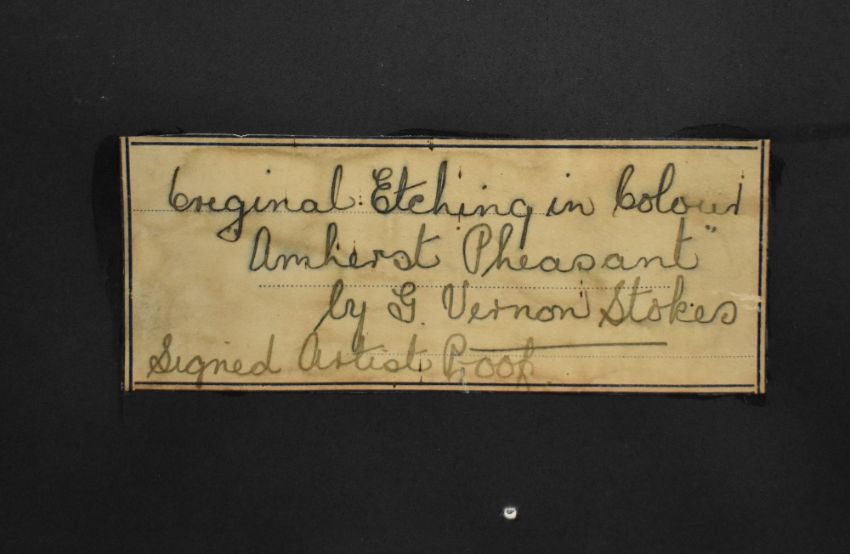 Original Etching in Colour
"Amherst Pheasant"
by G. Vernon Stokes
Signed Artist Proof.